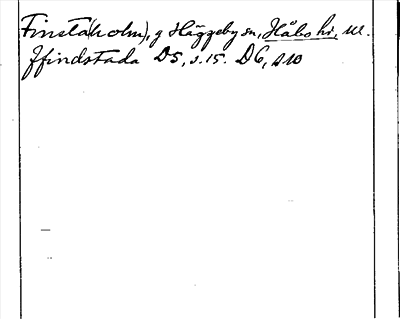 Finsta(holm), g Häggeby sn, Håbo hd, U.
ffindstada D5, s. 15. D6, s10